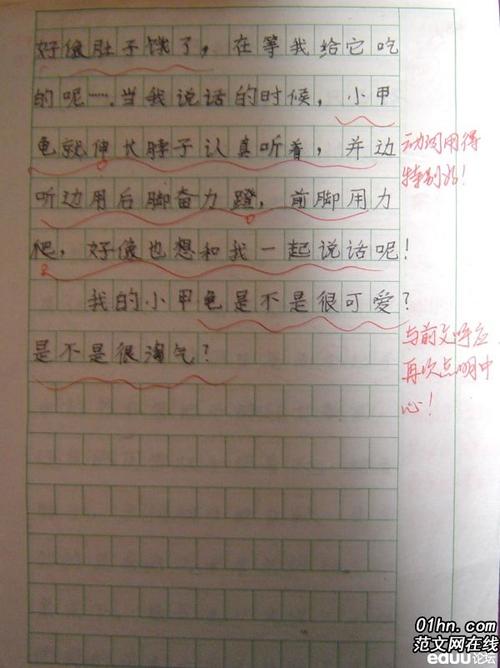 好像肚子饿了，在等我给它吃
的呢……当我说话的时候，小甲
龟就伸长脖子认真听着，并边
听边用后脚奋力蹬，前脚用力
爬，好像也想和我一起说话呢！
动词用得
特别好！
我的小甲龟是不是很可爱？
是不是很淘气？
与前文呼应
再次点明中
心！
01hn.com
范文网在线
eduu论坛